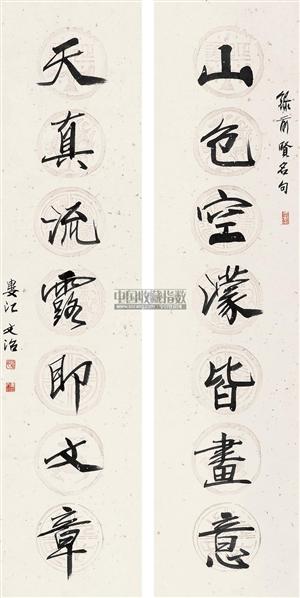 録前賢名句
山色空濛皆畫意
天真流露即文章
婁江文治
中国收藏指数